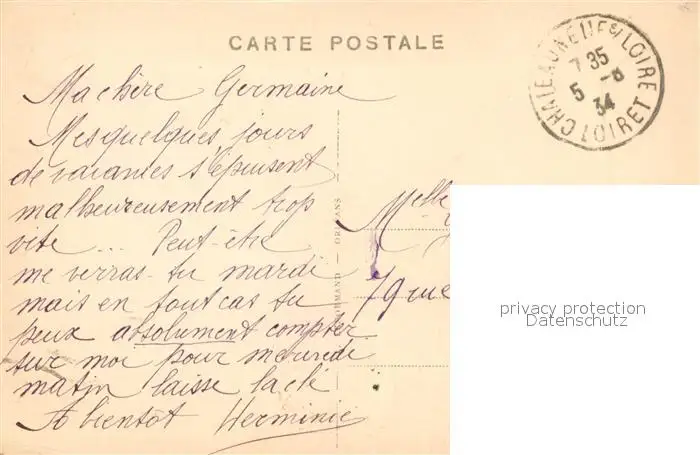 CARTE POSTALE
CHATEAUNEUF S/ LOIRE
7 35
5 -8
34
LOIRET
Ma chère Germaine
Mes quelques jours
de vacances s'épuisent
malheureusement trop
vite ... Peut-être
me verras-tu mardi
mais en tout cas tu
peux absolument compter
sur moi pour mercredi
matin laisse la clé
A bientôt Herminie
ORLÉANS
Melle
79 rue
privacy protection
Datenschutz